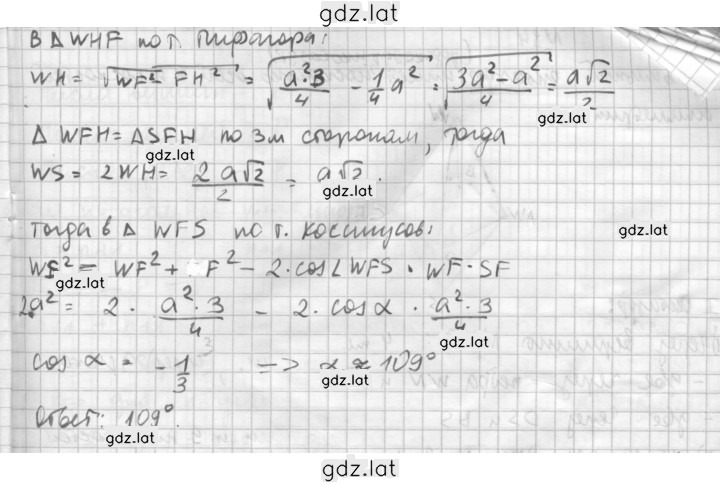 gdz.lat
В Δ WHF по т. Пифагора:
WH = √(WF² - FH²) = √(a²·3/4 - 1/4 a²) = √((3a² - a²)/4) = a√2/2
gdz.lat
Δ WFH = Δ SFH по 3м сторонам, тогда
gdz.lat
WS = 2WH = 2a√2/2 = a√2.
gdz.lat
Тогда в Δ WFS по т. косинусов:
gdz.lat
WS² = WF² + F² - 2·cos∠WFS · WF·SF
gdz.lat
2a² = 2 · a²·3/4 - 2·cos α · a²·3/4
gdz.lat
cos α = -1/3 => α ≈ 109°
gdz.lat
Ответ: 109°.
gdz.lat
gdz.lat